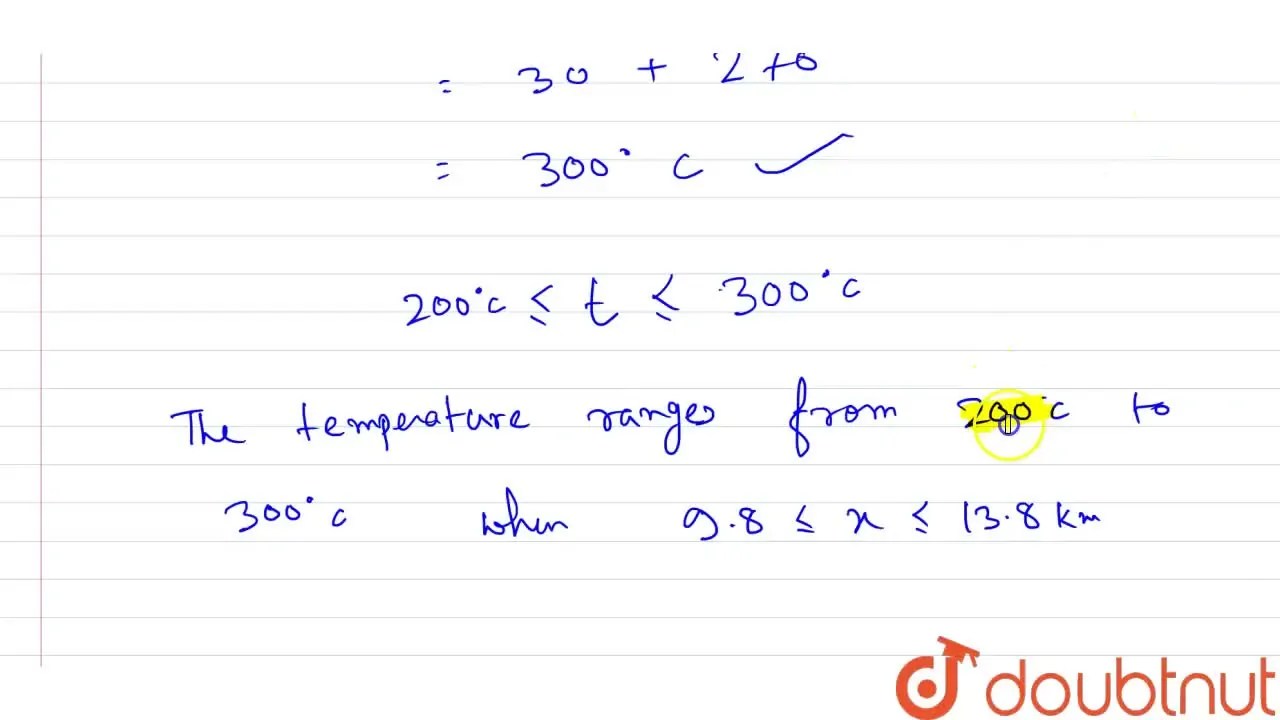 = 30 + 270
= 300° C ✓
200°C ≤ t ≤ 300°C
The temperature ranges from 200°C to
300°C when 9.8 ≤ x ≤ 13.8 Km
doubtnut